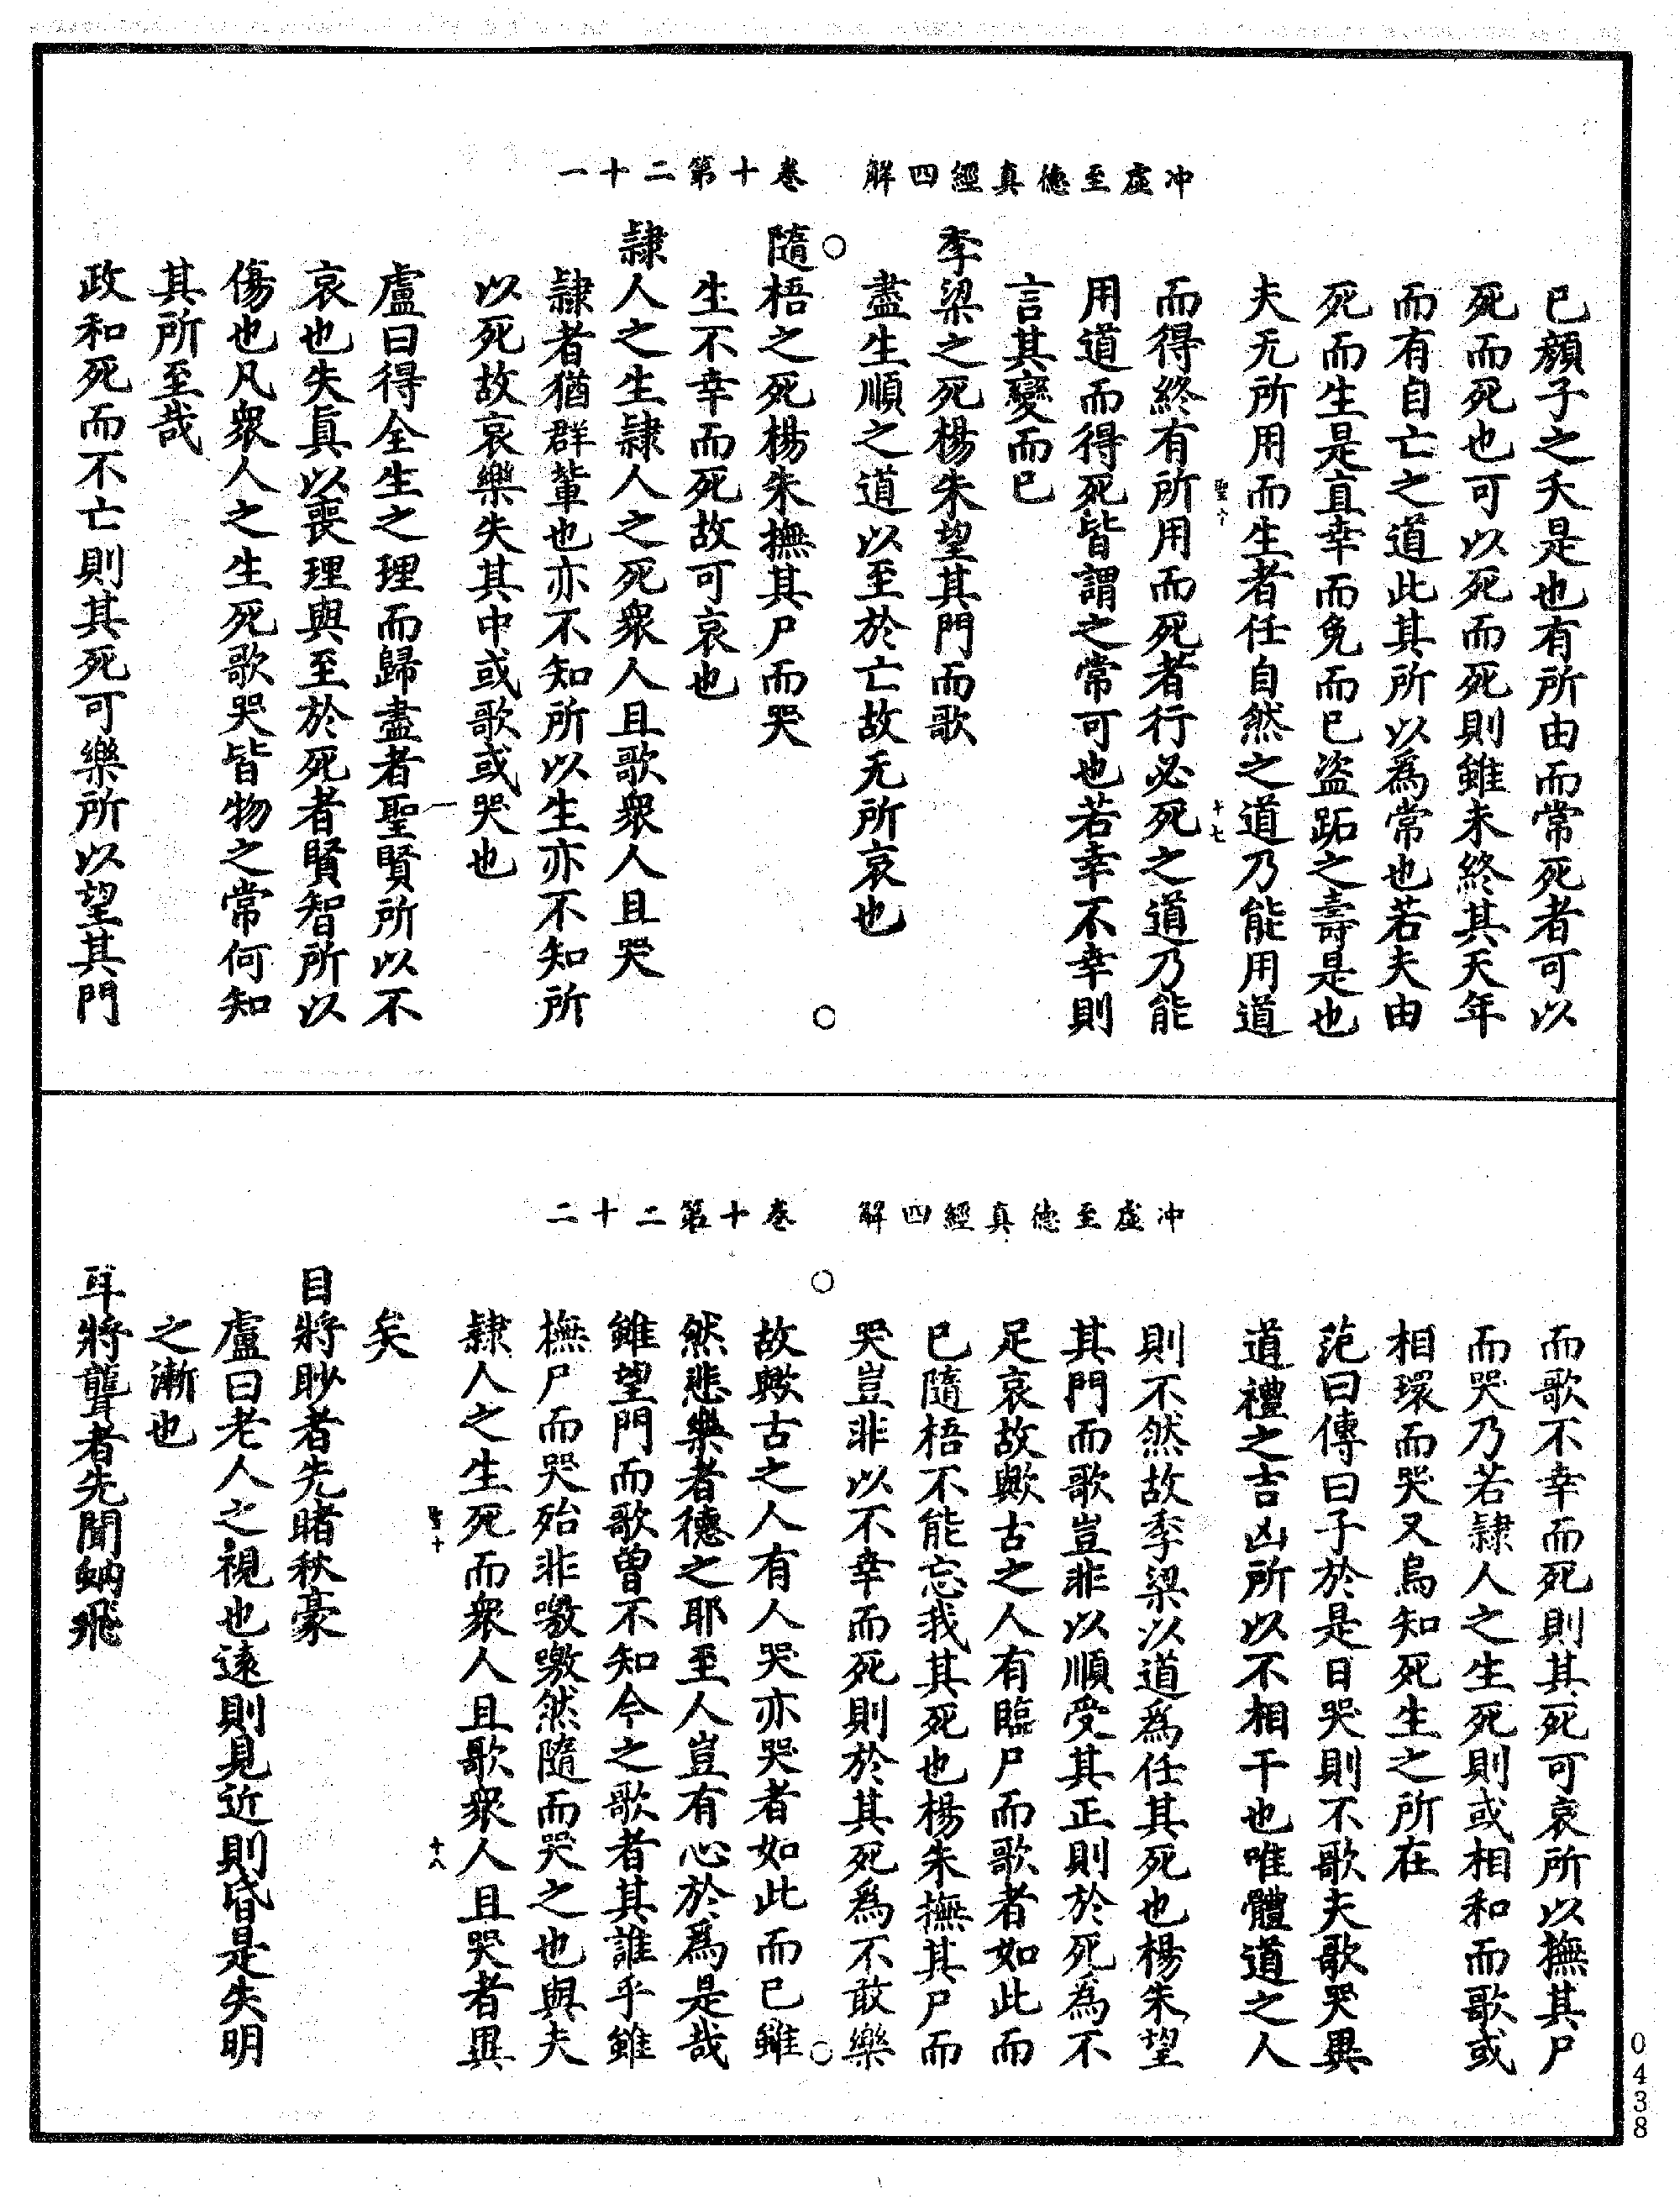 冲虛至德真經四解　卷十第二十一
已顏子之夭是也有所由而常死者可以
死而死也可以死而死則雖未終其天年
而有自亡之道此其所以為常也若夫由
死而生是直幸而免而已盜跖之壽是也
夫无所用而生者任自然之道乃能用道
而得終有所用而死者行必死之道乃能
用道而得死皆謂之常可也若幸不幸則
言其變而已
季梁之死楊朱望其門而歌
盡生順之道以至於亡故无所哀也
隨梧之死楊朱撫其尸而哭
生不幸而死故可哀也
隷人之生隷人之死衆人且歌衆人且哭
隷者猶群輩也亦不知所以生亦不知所
以死故哀樂失其中或歌或哭也
盧曰得全生之理而歸盡者聖賢所以不
哀也失真以喪理與至於死者賢智所以
傷也凡衆人之生死歌哭皆物之常何知
其所至哉
政和死而不亡則其死可樂所以望其門
冲虛至德真經四解　卷十第二十二
而歌不幸而死則其死可哀所以撫其尸
而哭乃若隷人之生死則或相和而歌或
相環而哭又烏知死生之所在
范曰傳曰子於是日哭則不歌夫歌哭異
道禮之吉凶所以不相干也唯體道之人
則不然故季梁以道為任其死也楊朱望
其門而歌豈非以順受其正則於死為不
足哀故歟古之人有臨尸而歌者如此而
已隨梧不能忘我其死也楊朱撫其尸而
哭豈非以不幸而死則於其死為不敢樂
故歟古之人有人哭亦哭者如此而已雖
然悲樂者德之耶至人豈有心於為是哉
雖望門而歌曾不知今之歌者其誰乎雖
撫尸而哭殆非噭噭然隨而哭之也與夫
隷人之生死而衆人且歌衆人且哭者異
矣
目將眇者先睹秋豪
盧曰老人之視也遠則見近則昏是失明
之漸也
耳將聾者先聞蚋飛
聖十
十七
聖十
十八
0438